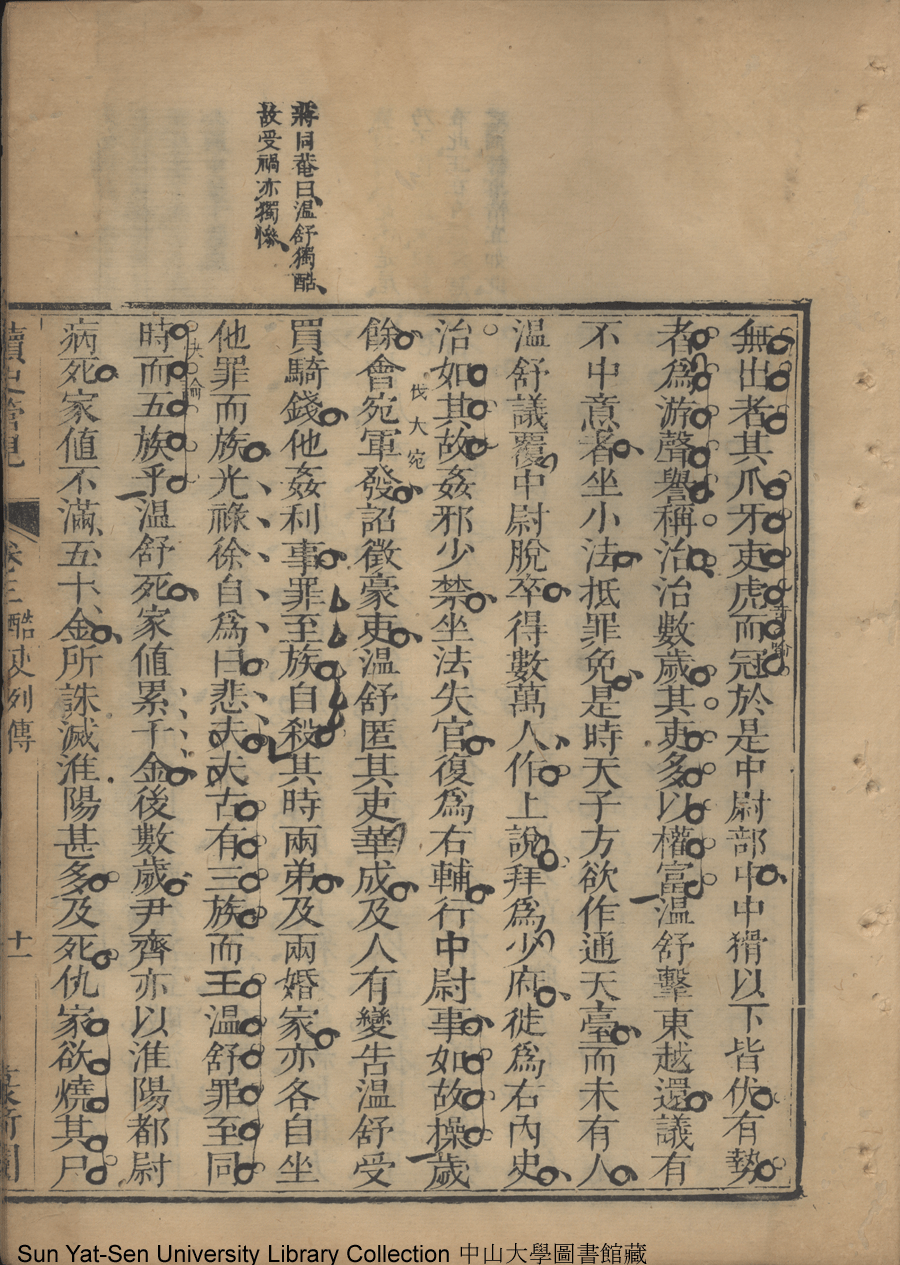 蔣同菴曰溫舒獨酷
故受禍亦獨慘
無出者其爪牙吏虎而冠於是中尉部中中猾以下皆伏有勢
者爲游聲譽稱治治數歲其吏多以權富溫舒擊東越還議有
不中意者坐小法抵罪免是時天子方欲作通天臺而未有人
溫舒議覆中尉脫卒得數萬人作上說拜爲少府徙爲右內史
治如其故姦邪少禁坐法失官復爲右輔行中尉事如故操歲
餘會宛軍發詔徵豪吏溫舒匿其吏華成及人有變告溫舒受
伐大宛
買騎錢他姦利事罪至族自殺其時兩弟及兩婚家亦各自坐
他罪而族光祿徐自爲曰悲夫夫古有三族而王溫舒罪至同
時而五族乎溫舒死家値累千金後數歲尹齊亦以淮陽都尉
病死家値不滿五十金所誅滅淮陽甚多及死仇家欲燒其尸
讀史管見 卷三 酷吏列傳 十一
Sun Yat-Sen University Library Collection 中山大學圖書館藏